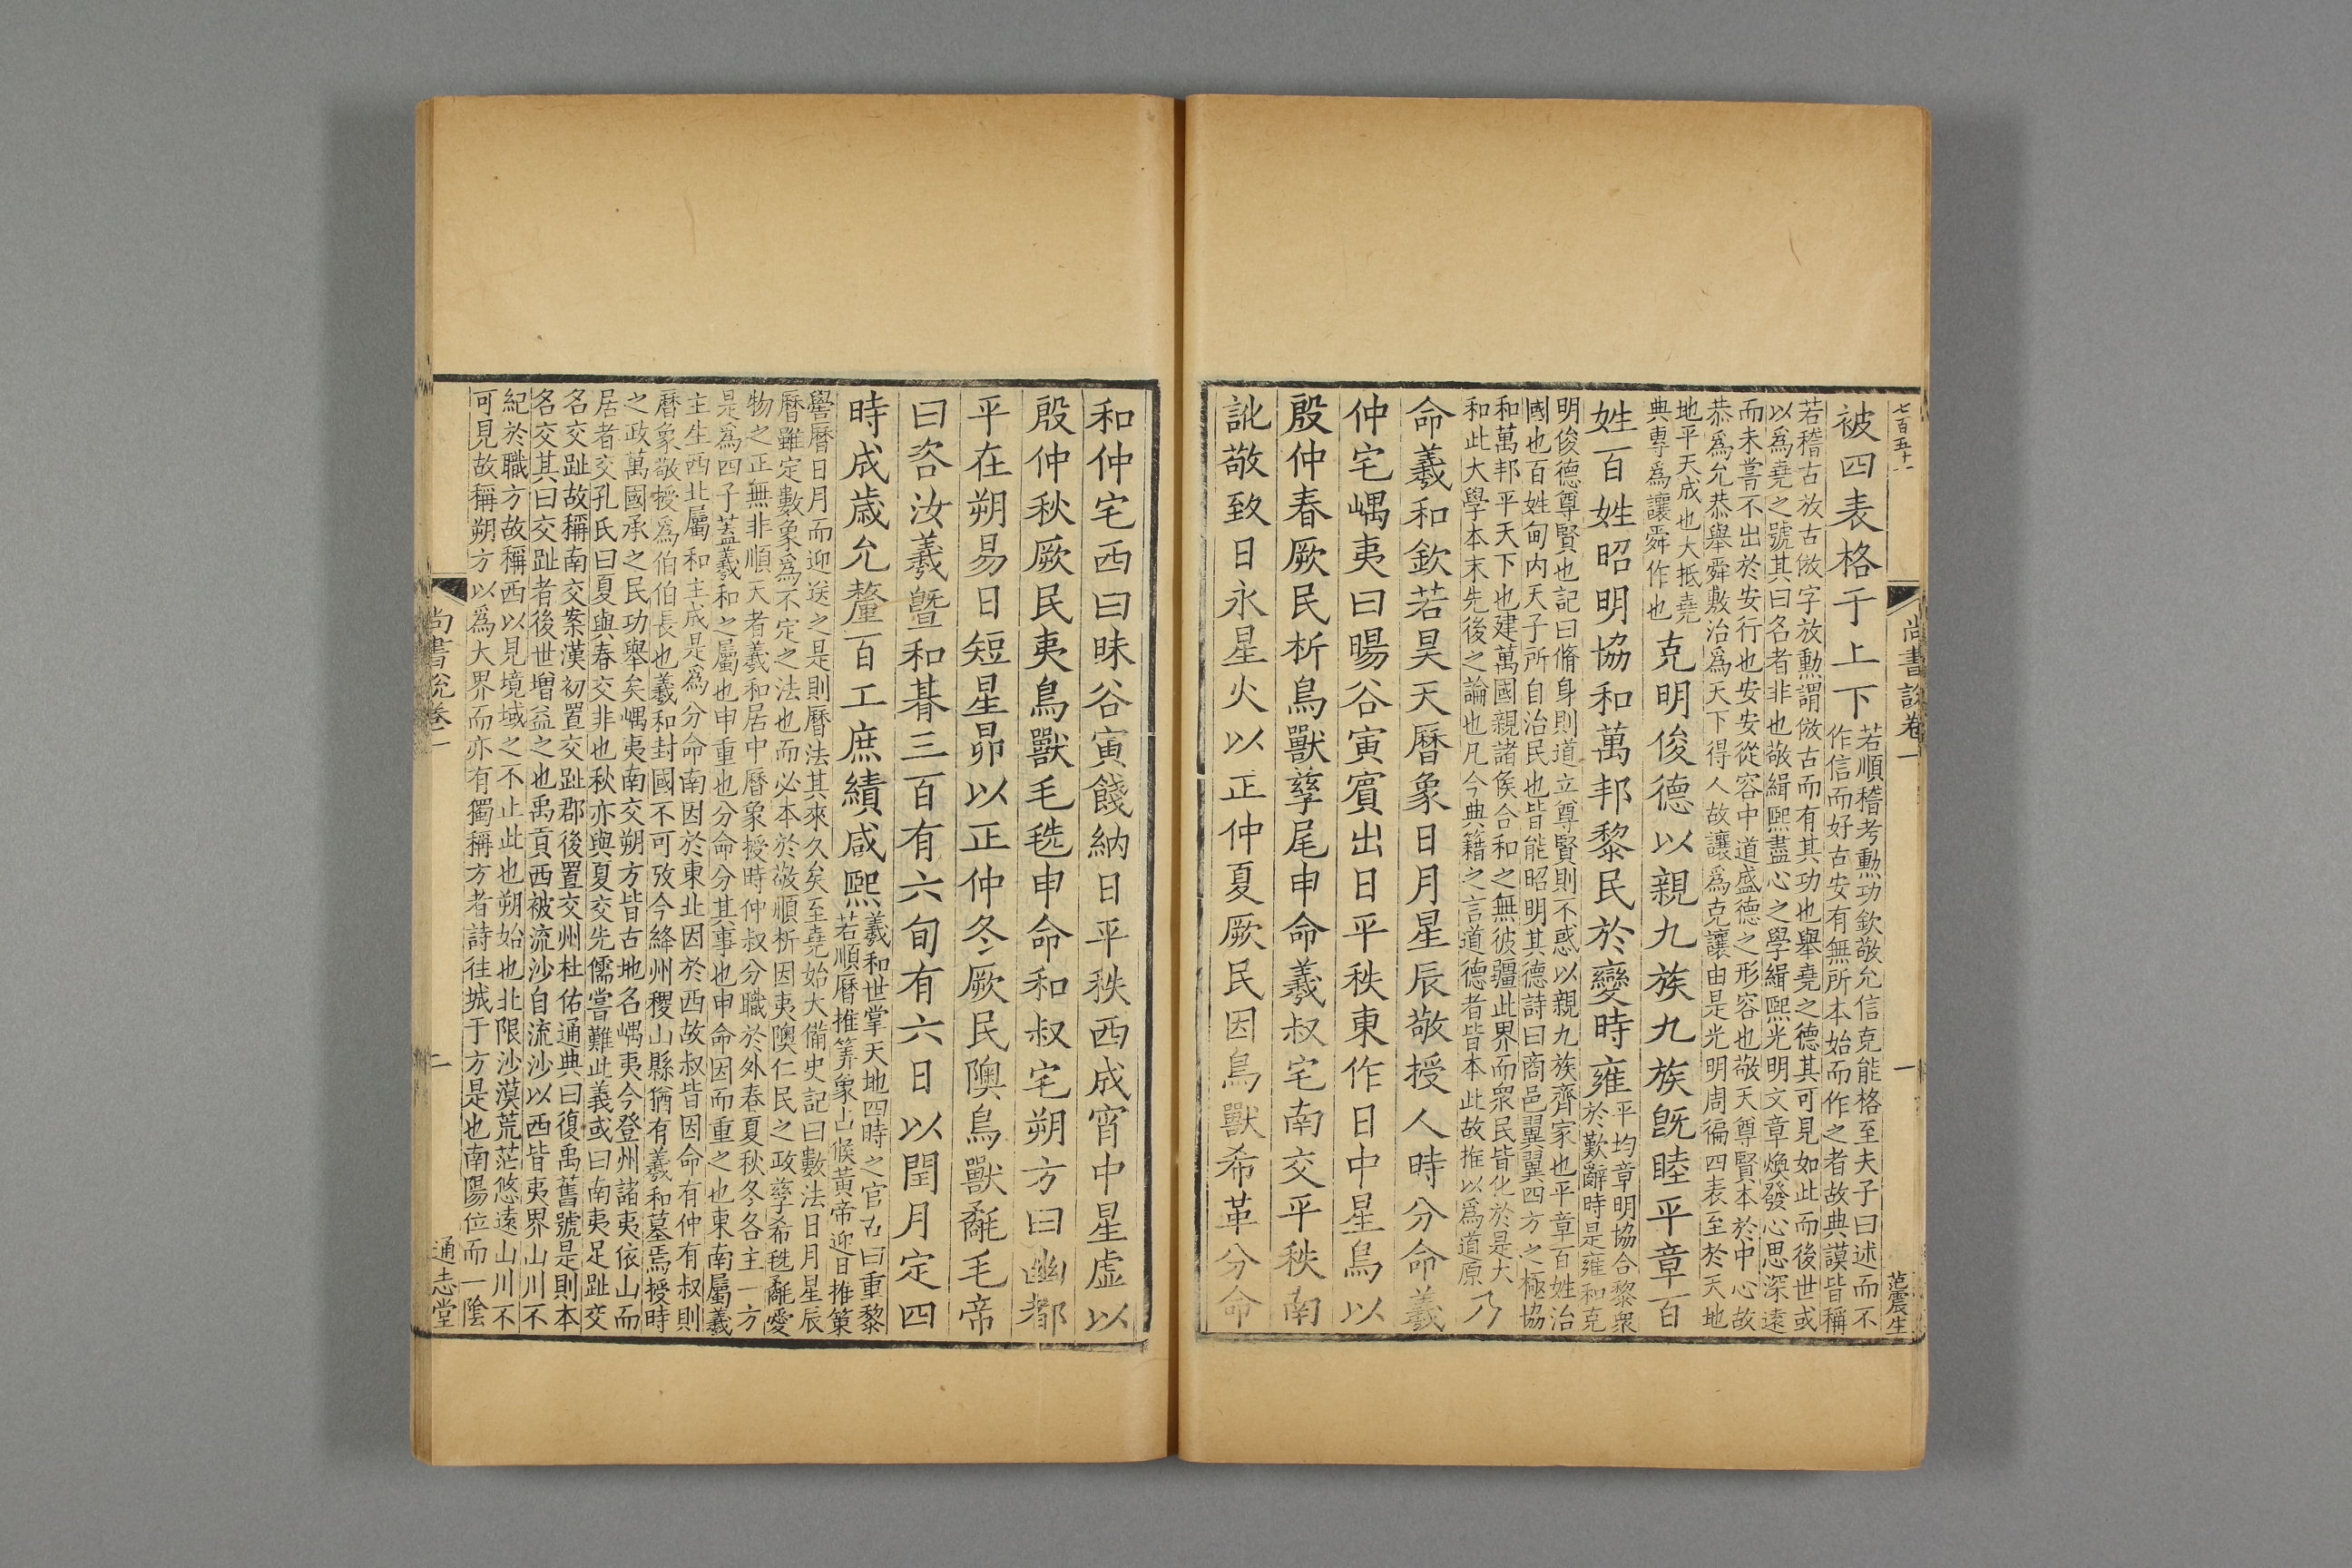 七百五十一
尚書說卷一
一
范震生
被四表格于上下
若順稽考勲功欽敬允信克能格至夫子曰述而不
作信而好古安有無所本始而作之者故典謨皆稱
若稽古放古倣字放勲謂倣古而有其功也舉堯之德其可見如此而後世或
以爲堯之號其曰名者非也敬緝熙盡心之學緝熙光明文章煥發心思深遠
而未嘗不出於安行也安安從容中道盛德之形容也敬天尊賢本於中心故
恭爲允恭舉舜敷治爲天下得人故讓爲克讓由是光明周徧四表至於天地
地平天成也大抵堯
典專爲讓舜作也
克明俊德以親九族九族旣睦平章百
姓百姓昭明協和萬邦黎民於變時雍
平均章明協合黎衆
於歎辭時是雍和克
明俊德尊賢也記曰脩身則道立尊賢則不惑以親九族齊家也平章百姓治
國也百姓甸內天子所自治民也皆能昭明其德詩曰商邑翼翼四方之極協
和萬邦平天下也建萬國親諸侯合和之無彼疆此界而衆民皆化於是大
和此大學本末先後之論也凡今典籍之言道德者皆本此故推以爲道原
乃
命羲和欽若昊天曆象日月星辰敬授人時分命羲
仲宅嵎夷曰暘谷寅賓出日平秩東作日中星鳥以
殷仲春厥民析鳥獸孳尾申命羲叔宅南交平秩南
訛敬致日永星火以正仲夏厥民因鳥獸希革分命
和仲宅西曰昧谷寅餞納日平秩西成宵中星虛以
殷仲秋厥民夷鳥獸毛毨申命和叔宅朔方曰幽都
平在朔易日短星昴以正仲冬厥民隩鳥獸氄毛帝
曰咨汝羲暨和朞三百有六旬有六日以閏月定四
時成歲允釐百工庶績咸熙
羲和世掌天地四時之官古曰重黎
若順曆推筭象占候黃帝迎日推策
嚳曆日月而迎送之是則曆法其來久矣至堯始大備史記曰數法日月星辰
曆雖定數象爲不定之法也而必本於敬順析因夷隩仁民之政孳希毨氄愛
物之正無非順天者羲和居中曆象授時仲叔分職於外春夏秋冬各主一方
是爲四子蓋羲和之屬也申重也分命分其事也申命因而重之也東南屬羲
主生西北屬和主成是爲分命南因於東北因於西故叔皆因命有仲有叔則
曆象敬授爲伯伯長也羲和封國不可攷今絳州稷山縣猶有羲和墓焉授時
之政萬國承之民功舉矣嵎夷南交朔方皆古地名嵎夷今登州諸夷依山而
居者交孔氏曰夏與春交非也秋亦與夏交先儒嘗難此義或曰南夷足趾交
名交趾故稱南交案漢初置交趾郡後置交州杜佑通典曰復禹舊號是則本
名交其曰交趾者後世增益之也禹貢西被流沙自流沙以西皆夷界山川不
紀於職方故稱西以見境域之不止此也朔始也北限沙漠荒茫悠遠山川不
可見故稱朔方以爲大界而亦有獨稱方者詩往城于方是也南陽位而一陰
尚書說卷一
二
通志堂